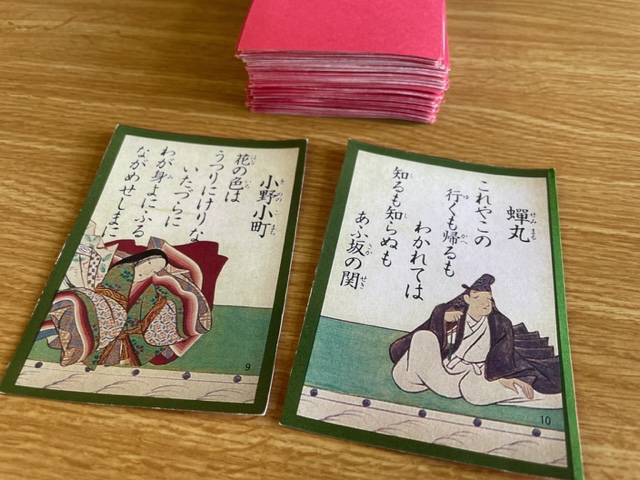 小野小町
花の色は
うつりにけりな
いたづらに
わが身よにふる
ながめせしまに
9
蟬丸
これやこの
行くも帰るも
わかれては
知るも知らぬも
あふ坂の関
10